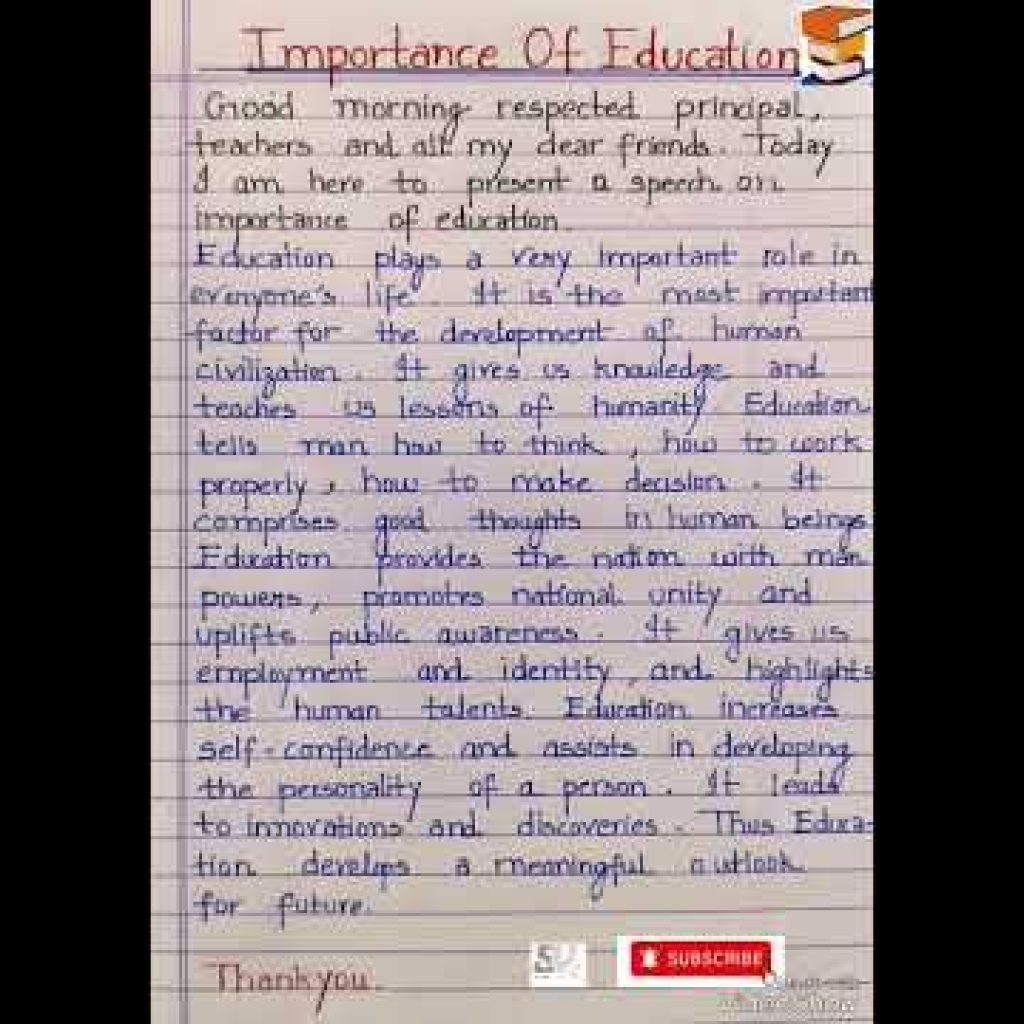 Importance Of Education
Good morning respected principal,
teachers and all my dear friends. Today
I am here to present a speech on
importance of education.
Education plays a very important role in
everyone's life. It is the most important
factor for the development of human
civilization. It gives us knowledge and
teaches us lessons of humanity Education
tells man how to think, how to work
properly, how to make decision. It
comprises good thoughts in human beings
Education provides the nation with man
powers, promotes national unity and
uplifts public awareness. It gives us
employment and identity, and highlights
the human talents. Education increases
self-confidence and assists in developing
the personality of a person. It leads
to innovations and discoveries. Thus Educa-
tion develops a meaningful outlook
for future.
Thankyou.
SUBSCRIBE